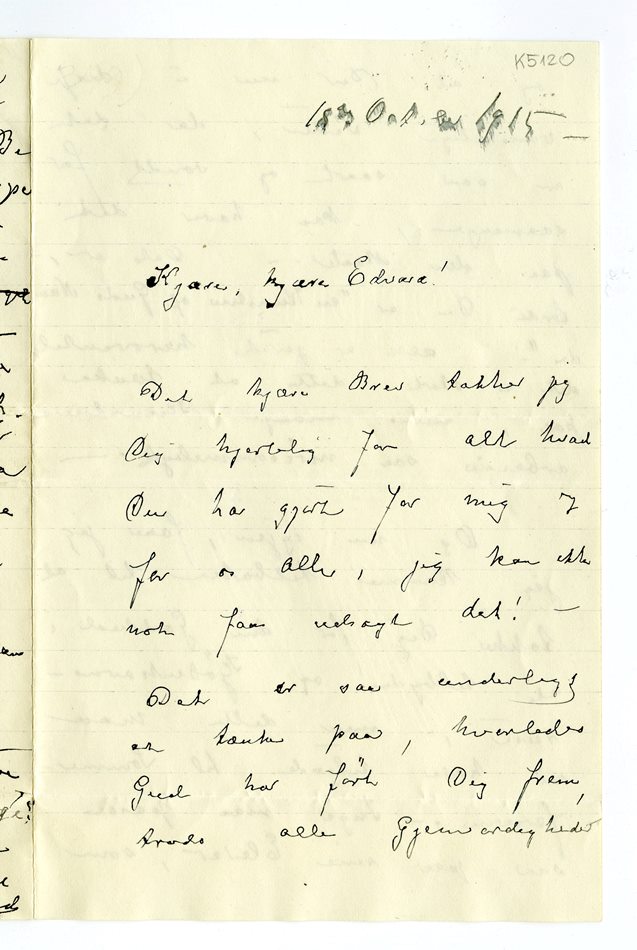 K5120
18 Oct. 1915 —
Kjære, kjære Edvard!
Det kjære Brev takker jeg
Dig hjertelig for alt hvad
Du har gjört for mig &
for os alle, jeg kan ikke
nok faa udsagt det! —
Det er saa underligt
at tænke paa, hvorledes
Gud har fört Dig frem,
trods alle Gjenvordigheder